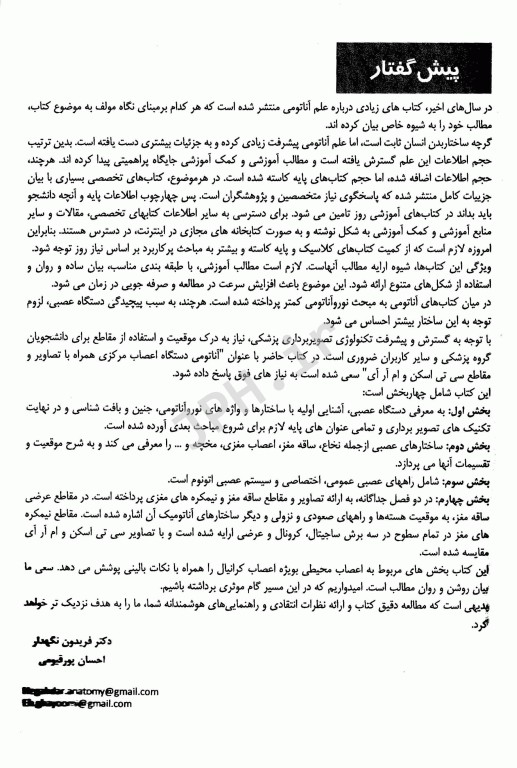 پیش گفتار
در سال‌های اخیر، کتاب های زیادی درباره علم آناتومی منتشر شده است که هر کدام برمبنای نگاه مولف به موضوع کتاب،
مطالب خود را به شیوه خاص بیان کرده اند.
گرچه ساختاربدن انسان ثابت است، اما علم آناتومی پیشرفت زیادی کرده و به جزئیات بیشتری دست یافته است. بدین ترتیب
حجم اطلاعات این علم گسترش یافته است و مطالب آموزشی و کمک آموزشی جایگاه پراهمیتی پیدا کرده اند. هرچند،
حجم اطلاعات اضافه شده، اما حجم کتاب‌های پایه کاسته شده است. در هرموضوع، کتاب‌های تخصصی بسیاری با بیان
جزییات کامل منتشر شده که پاسخگوی نیاز متخصصین و پژوهشگران است. پس چهارچوب اطلاعات پایه و آنچه دانشجو
باید بداند در کتاب‌های آموزشی روز تامین می شود. برای دسترسی به سایر اطلاعات کتابهای تخصصی، مقالات و سایر
منابع آموزشی و کمک آموزشی به شکل نوشته و به صورت کتابخانه های مجازی در اینترنت، در دسترس هستند. بنابراین
امروزه لازم است که از کمیت کتاب‌های کلاسیک و پایه کاسته و بیشتر به مباحث پرکاربرد بر اساس نیاز روز توجه شود.
ویژگی این کتاب‌ها، شیوه ارایه مطالب آنهاست. لازم است مطالب آموزشی، با طبقه بندی مناسب، بیان ساده و روان و
استفاده از شکل‌های متنوع ارائه شود. این موضوع باعث افزایش سرعت در مطالعه و صرفه جویی در زمان می شود.
در میان کتاب‌های آناتومی به مبحث نوروآناتومی کمتر پرداخته شده است. هرچند، به سبب پیچیدگی دستگاه عصبی، لزوم
توجه به این ساختار بیشتر احساس می شود.
با توجه به گسترش و پیشرفت تکنولوژی تصویربرداری پزشکی، نیاز به درک موقعیت و استفاده از مقاطع برای دانشجویان
گروه پزشکی و سایر کاربران ضروری است. در کتاب حاضر با عنوان "آناتومی دستگاه اعصاب مرکزی همراه با تصاویر و
مقاطع سی تی اسکن و ام آر آی" سعی شده است به نیاز های فوق پاسخ داده شود.
این کتاب شامل چهاربخش است:
بخش اول: به معرفی دستگاه عصبی، آشنایی اولیه با ساختارها و واژه های نوروآناتومی، جنین و بافت شناسی و در نهایت
تکنیک های تصویر برداری و تمامی عنوان های پایه لازم برای شروع مباحث بعدی آورده شده است.
بخش دوم: ساختارهای عصبی ازجمله نخاع، ساقه مغز، اعصاب مغزی، مخچه و ... را معرفی می کند و به شرح موقعیت و
تقسیمات آنها می پردازد.
بخش سوم: شامل راههای عصبی عمومی، اختصاصی و سیستم عصبی اتونوم است.
بخش چهارم: در دو فصل جداگانه، به ارائه تصاویر و مقاطع ساقه مغز و نیمکره های مغزی پرداخته است. در مقاطع عرضی
ساقه مغز، به موقعیت هسته‌ها و راههای صعودی و نزولی و دیگر ساختارهای آناتومیک آن اشاره شده است. مقاطع نیمکره
های مغز در تمام سطوح در سه برش ساجیتال، کرونال و عرضی ارایه شده است و با تصاویر سی تی اسکن و ام آر آی
مقایسه شده است.
این کتاب بخش های مربوط به اعصاب محیطی بویژه اعصاب کرانیال را همراه با نکات بالینی پوشش می دهد. سعی ما
بیان روشن و روان مطالب است. امیدواریم که در این مسیر گام موثری برداشته باشیم.
بدیهی است که مطالعه دقیق کتاب و ارائه نظرات انتقادی و راهنمایی‌های هوشمندانه شما، ما را به هدف نزدیک تر خواهد
کرد.
دکتر فریدون نگهدار
احسان پورقیومی
anatomy@gmail.com
@gmail.com